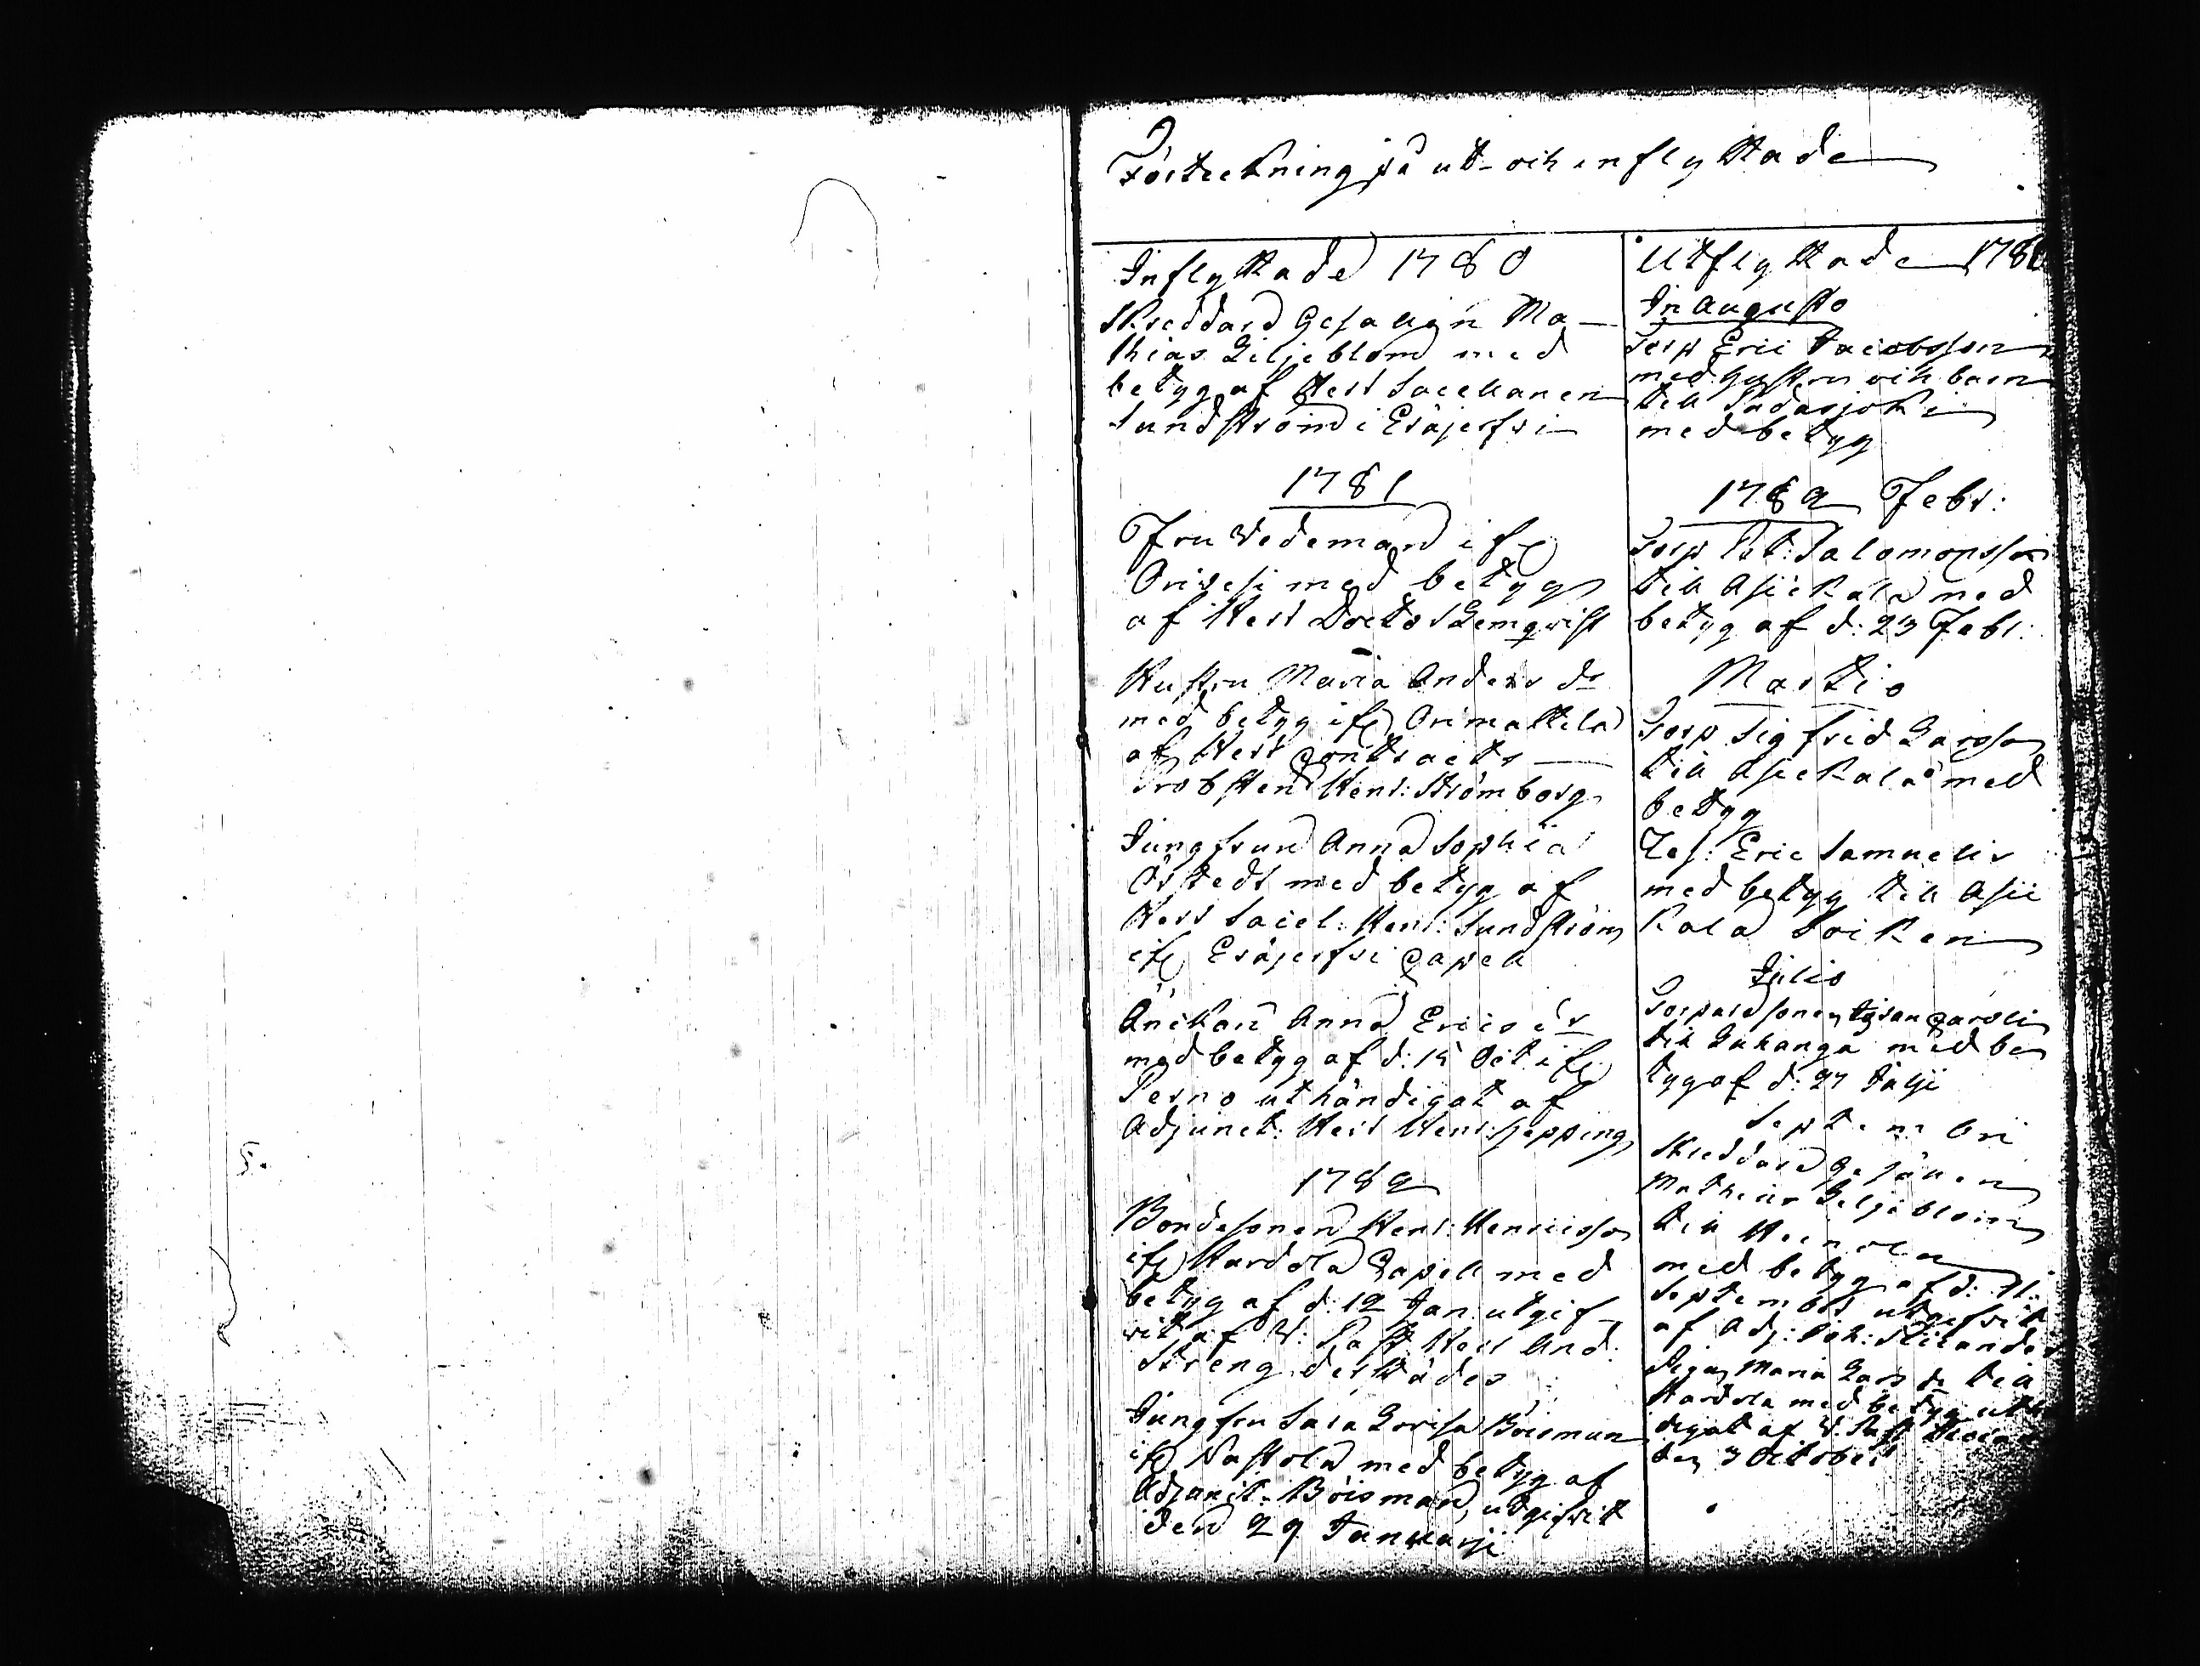 Förtekning på ut- och inflyttade
Inflyttade 1780
Skreddare Gesällen Ma-
thias Liljeblom med
betyg af Herr Sacellanen
Sundström i Eräjerfvi
1781
Fru Wedeman ifr
Orivesi med betyg
af Herr Doctor Lemqvist
Hustru Maria Anders dr
med betyg ifr Orimattila
af Herr Contracts
Probsten Henr: Strömborg
Jungfrun Anna Sophia
Örstedt med betyg af
Herr Sacel: Henr: Sundström
ifr Eräjerfvi Capell
Änckan Anna Erics dr
med betyg af d: 15 Oct ifr
Perno uthändigat af
Adjunct: Herr Henr: Hepping
1782
Bondesonen Henr: Henricsson
ifr Hardola Capell med
betyg af d: 12 Jan: utgif-
vit af V: Past: Herr And:
Streng derstädes
Jungfru Sara Lovisa Böisman
ifr Nastola med betyg af
Adjunct: Böisman, utgifvit
den 29 Januarji
Utflyttade 1780
In Augusto
Torp Eric Jacobsson
med hustru och barn
till Padasjoki
med betyg
1782 Febr:
Torp Salomonsson
till Asickala med
betyg af d: 23 Febr:
Martio
Torp Sigfrid Larsson
till Asickala med
betyg
Eric Samuelis
med betyg till Asic
kala Socken
Julio
Torparesonen
till Luhanga med be
tyg af d: 27 Julji
Septembri
Skreddare gesällen
Mathias Liljeblom
till Heinola
med betyg af d: 11:
Septembr utgifvit
af Adj: Joh:
Pigan Maria Lars dr till
Hardola med betyg uthän
digat af V. Past
den 3 October